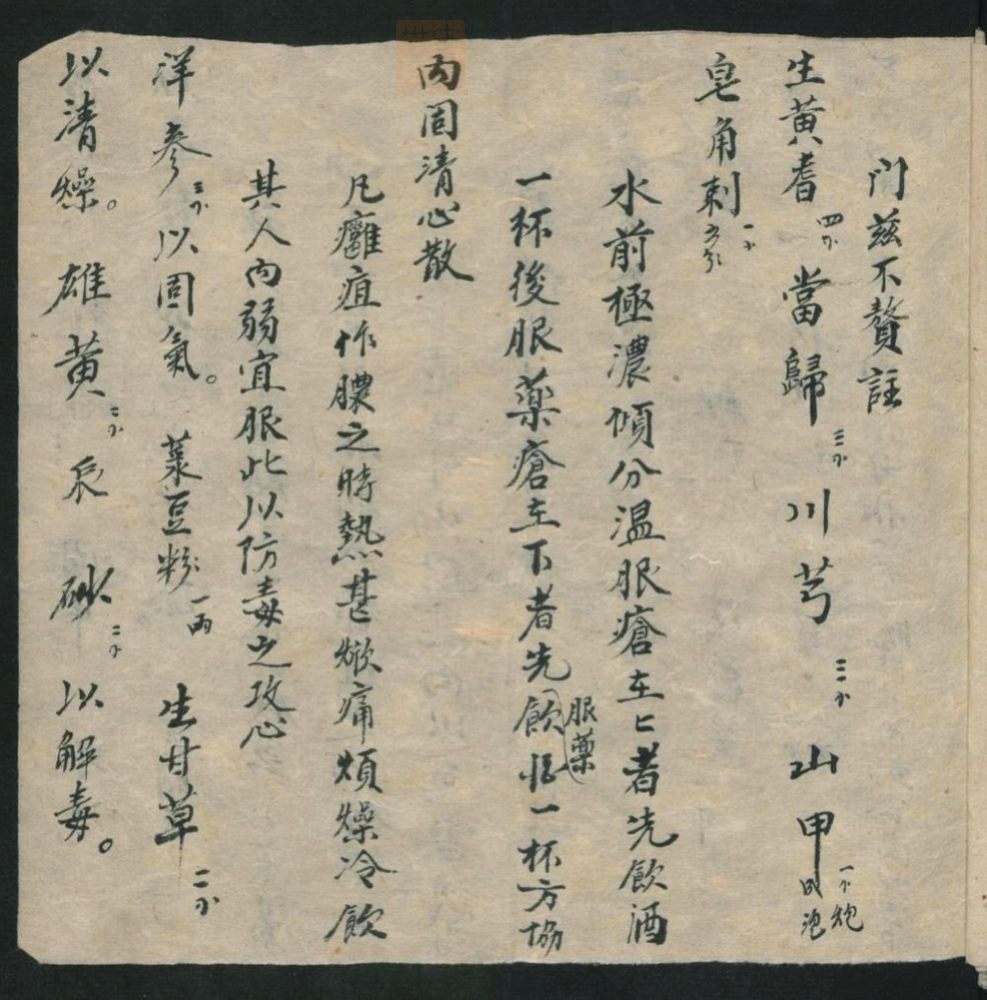 門茲不贅註
生黃耆 四分 當歸 三分 川芎 三分 山甲 一个炮
皂角刺
水前極濃傾分溫服瘡在上者先飲酒
一杯後服薬瘡在下者先飲服藥一杯方協
內固清心散
凡癰疽作膿之時熱甚焮痛煩燥冷飲
其人內弱宜服此以防毒之攻心
洋參 三分 以固氣。菉豆粉 一両 生甘草 二分
以清燥。雄黃 二分 辰砂 二分 以解毒。